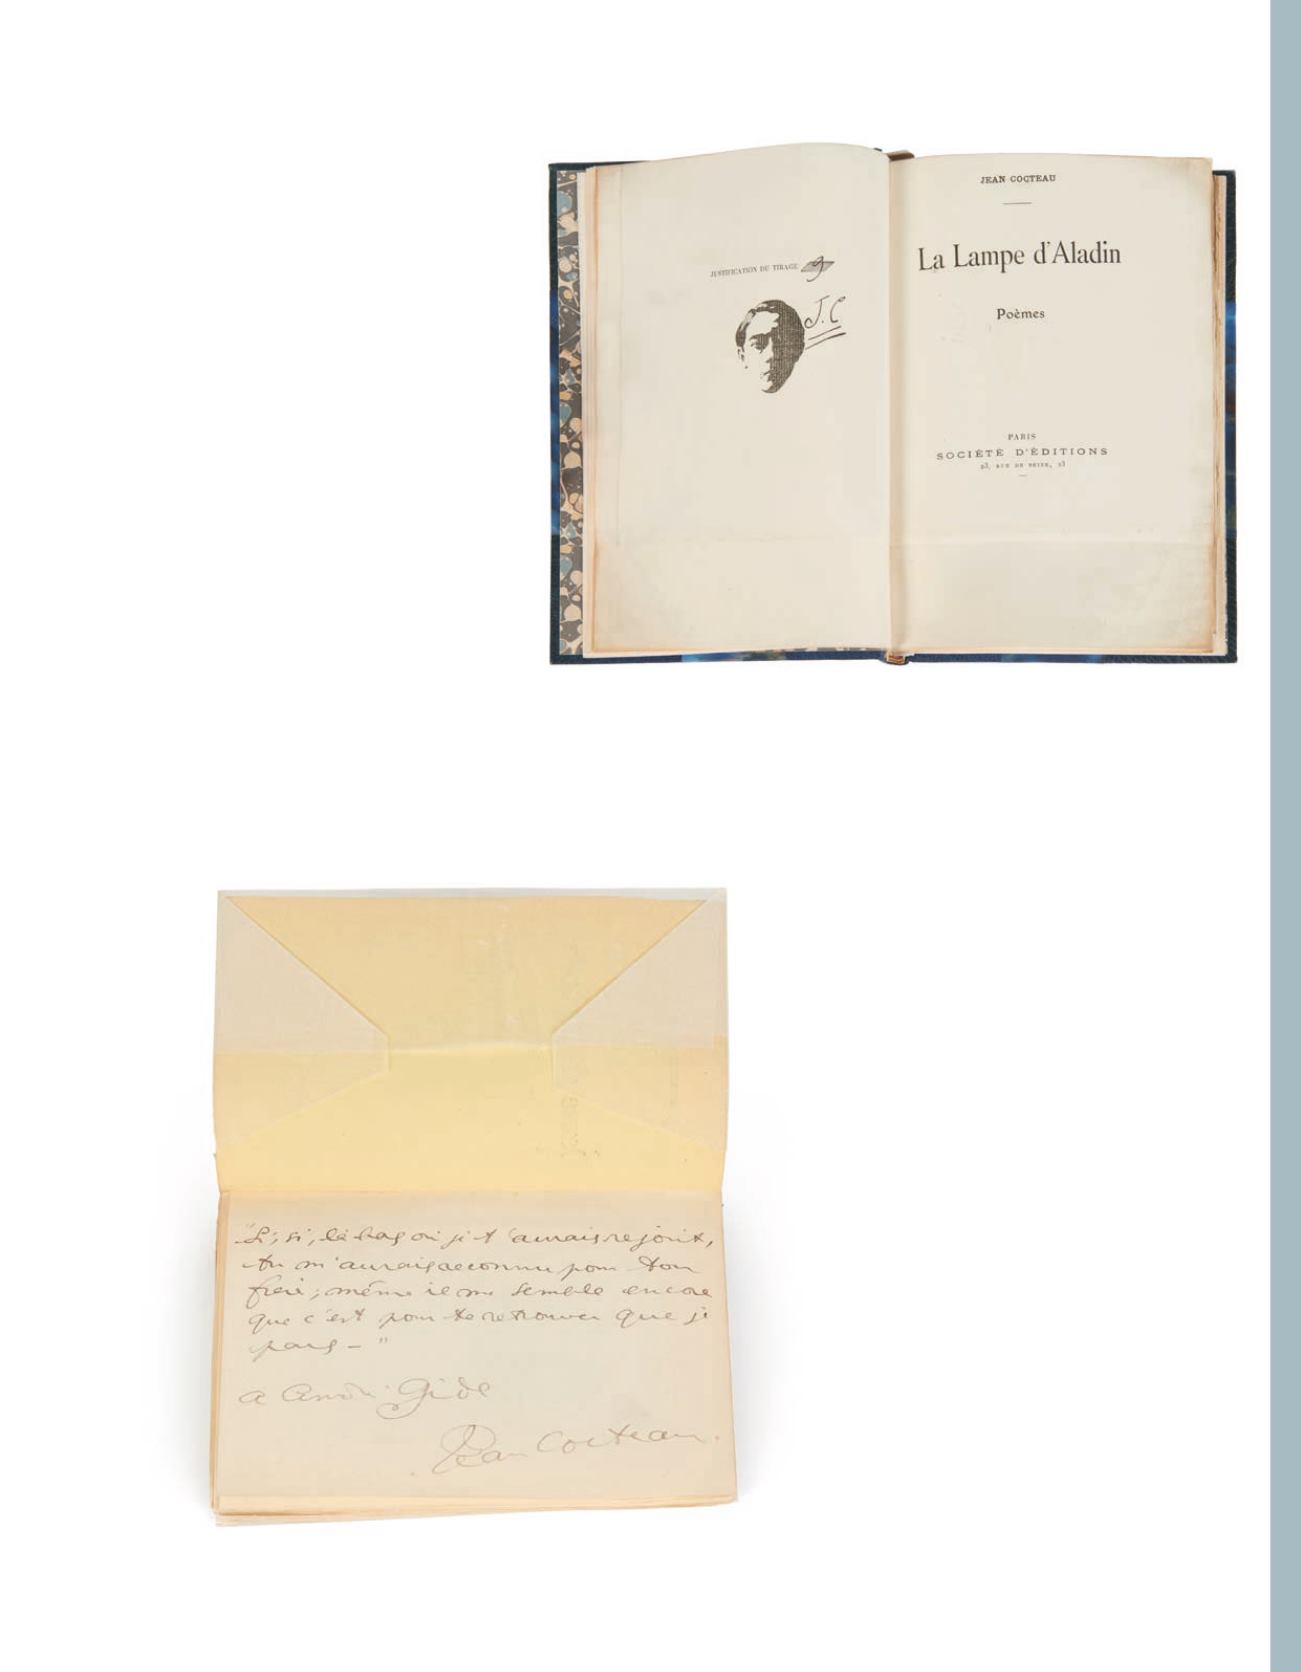 JUSTIFICATION DU TIRAGE 9
J. C
JEAN COCTEAU
La Lampe d'Aladin
Poèmes
PARIS
SOCIÉTÉ D'ÉDITIONS
23, RUE DE SEINE, 23
"Si, si, là-bas où je t'aurais rejoint,
tu m'aurais reconnu pour ton
frère ; même il me semble encore
que c'est pour te retrouver que je
pars — "
a André Gide
Jean Cocteau.